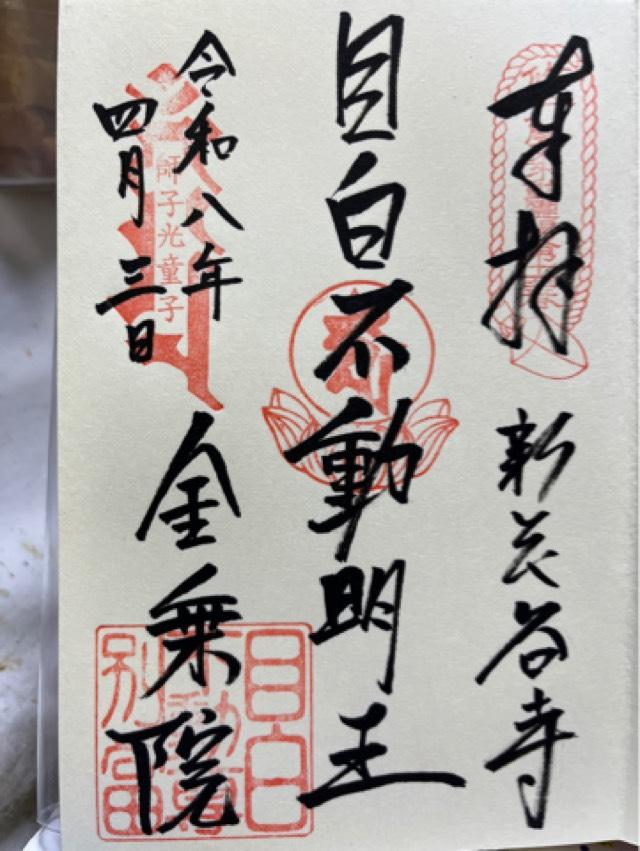 奉拝
新長谷寺
目白不動明王
令和八年
四月三日
師子光童子
金乗院
目白
不動尊
別當